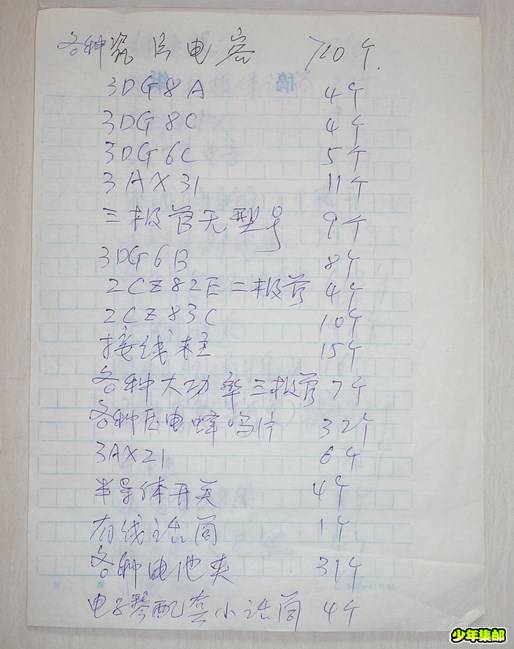 各种瓷片电容 710个.
3DG8A 4个
3DG8C 4个
3DG6C 5个
3AX31 11个
三极管无型号 9个
3DG6B 8个
2CZ82E二极管 4个
2CZ83C 10个
接线柱 15个
各种大功率三极管 7个
各种压电蜂鸣片 32个
3AX21 6个
半导体开关 4个
有线话筒 1个
各种电池夹 31个
电子琴配套小话筒 4个
少年集邮